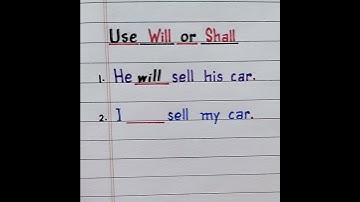 Use Will or Shall
1. He will sell his car.
2. I ____ sell my car.